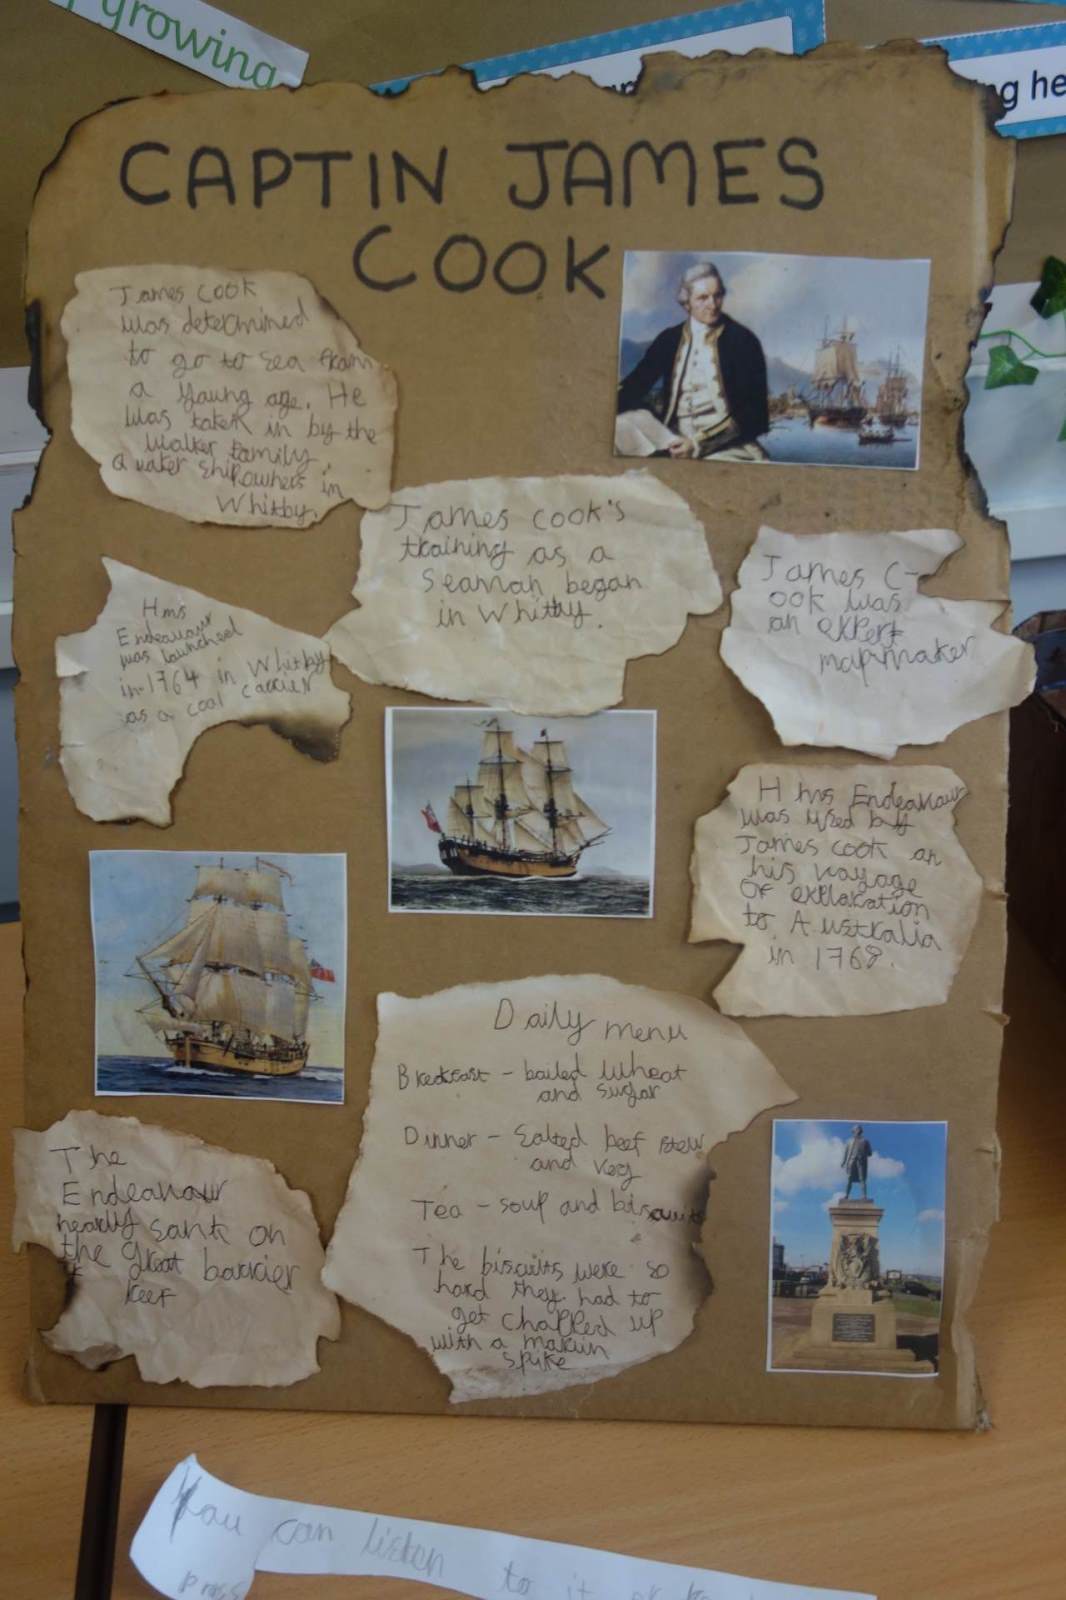 growing
ng he
CAPTIN JAMES
COOK
James cook
was determined
to go to sea from
a young age. He
was taken in by the
walker family,
Quaker shipowners in
Whitby.
James cook's
training as a
Seaman began
in Whitby.
James C-
ook was
an expert
mapmaker
Hms
Endeavour
was launched
in 1764 in Whitby
as a coal carrier
Hms Endeavour
was used by
James cook on
his voyage
Of exploration
to Australia
in 1768.
Daily menu
Breakfast - boiled wheat
and sugar
Dinner - Salted beef stew
and veg
Tea - soup and biscuits
The biscuits were so
hard they had to
get chopped up
with a
spike
The
Endeavour
nearly sank on
the great barrier
reef
You can listen to it
press